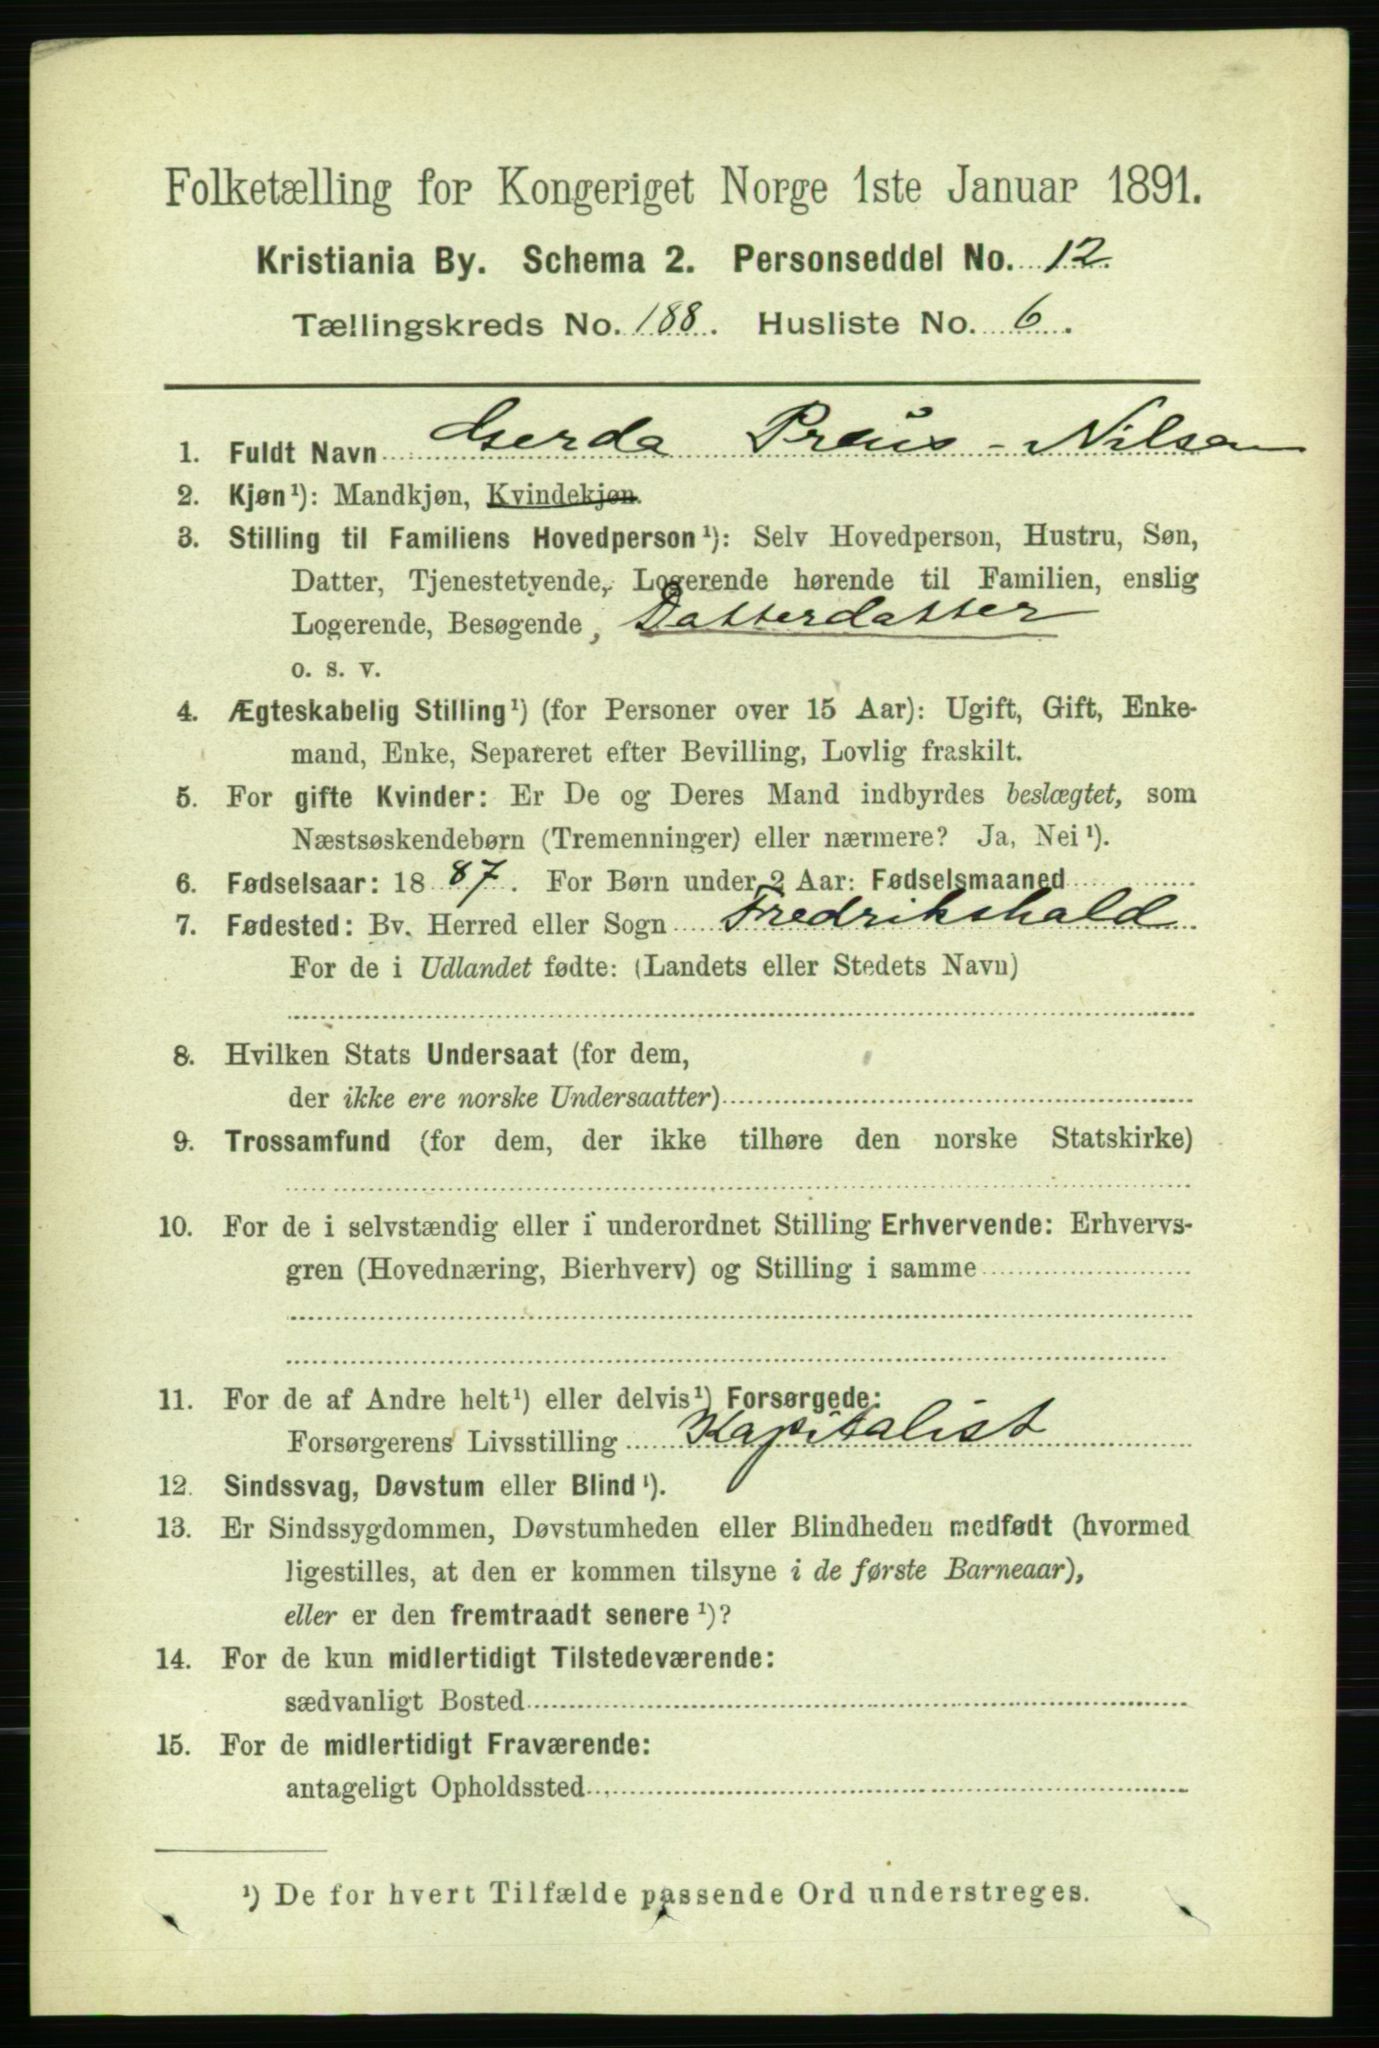 Folketælling for Kongeriget Norge 1ste Januar 1891.
Kristiania By. Schema 2. Personseddel No. 12.
Tællingskreds No. 188. Husliste No. 6.
1. Fuldt Navn Gerda Preus-Nilsen
2. Kjøn¹): Mandkjøn, Kvindekjøn.
3. Stilling til Familiens Hovedperson¹): Selv Hovedperson, Hustru, Søn,
Datter, Tjenestetyende, Logerende hørende til Familien, enslig
Logerende, Besøgende, Datterdatter
o. s. v.
4. Ægteskabelig Stilling¹) (for Personer over 15 Aar): Ugift, Gift, Enke-
mand, Enke, Separeret efter Bevilling, Lovlig fraskilt.
5. For gifte Kvinder: Er De og Deres Mand indbyrdes beslægtet, som
Næstsøskendebørn (Tremenninger) eller nærmere? Ja, Nei¹).
6. Fødselsaar: 1887. For Børn under 2 Aar: Fødselsmaaned
7. Fødested: By, Herred eller Sogn Fredrikshald
For de i Udlandet fødte: (Landets eller Stedets Navn)
8. Hvilken Stats Undersaat (for dem,
der ikke ere norske Undersaatter)
9. Trossamfund (for dem, der ikke tilhøre den norske Statskirke)
10. For de i selvstændig eller i underordnet Stilling Erhvervende: Erhvervs-
gren (Hovednæring, Bierhverv) og Stilling i samme
11. For de af Andre helt¹) eller delvis¹) Forsørgede:
Forsørgerens Livsstilling Kapitalist
12. Sindssvag, Døvstum eller Blind¹).
13. Er Sindssygdommen, Døvstumheden eller Blindheden medfødt (hvormed
ligestilles, at den er kommen tilsyne i de første Barneaar),
eller er den fremtraadt senere¹)?
14. For de kun midlertidigt Tilstedeværende:
sædvanligt Bosted
15. For de midlertidigt Fraværende:
antageligt Opholdssted
¹) De for hvert Tilfælde passende Ord understreges.